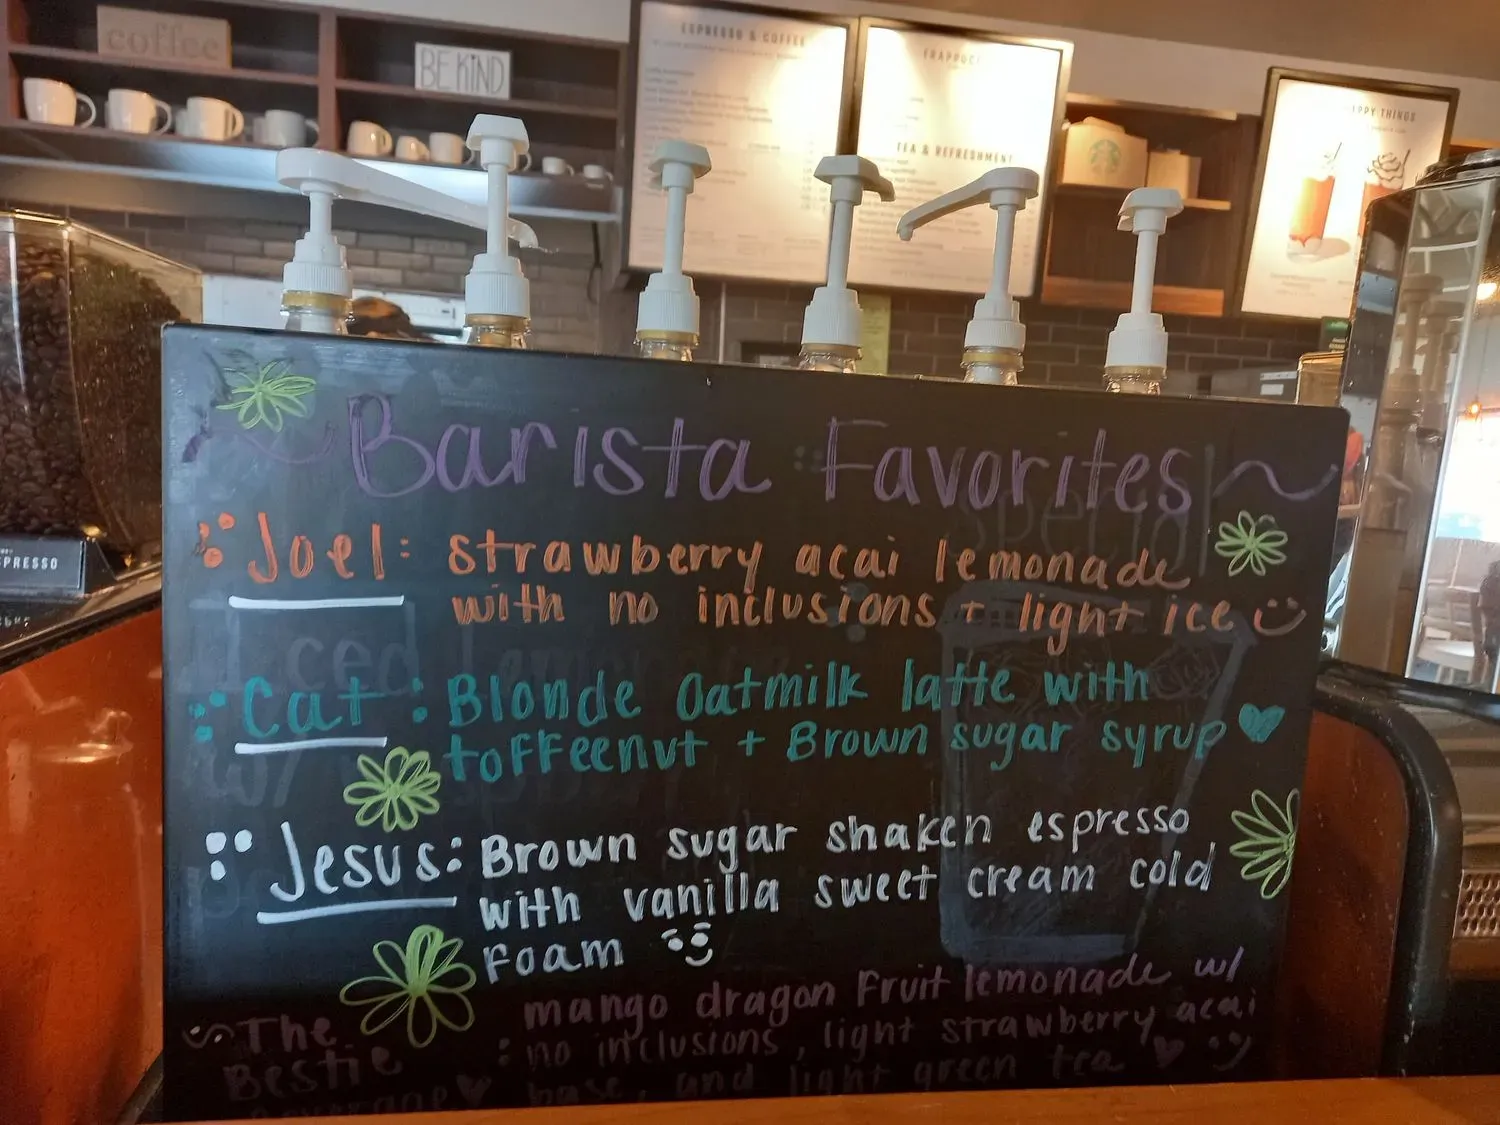 coffee
BE KIND
ESPRESSO & COFFEE
FRAPPUC
TEA & REFRESHMENT
PPY THINGS
PRESSO
Barista Favorites
Joel: strawberry acai lemonade
with no inclusions + light ice
Cat: Blonde Oatmilk latte with
toffeenut + Brown sugar syrup
Jesus: Brown sugar shaken espresso
with vanilla sweet cream cold
foam
The
Bestie
Beverage
: mango dragon fruit lemonade w/
no inclusions, light strawberry acai
base, and light green tea